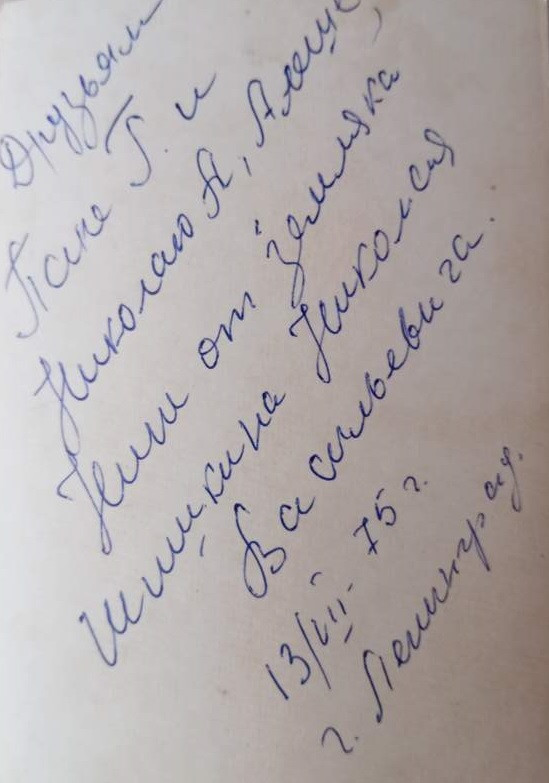 Друзьям
Пане Г. и
Николаю Я, Алеше,
Нии от земляка
Шишкина Николая
Васильевича.
13/VII- 75 г.
г. Ленинград.